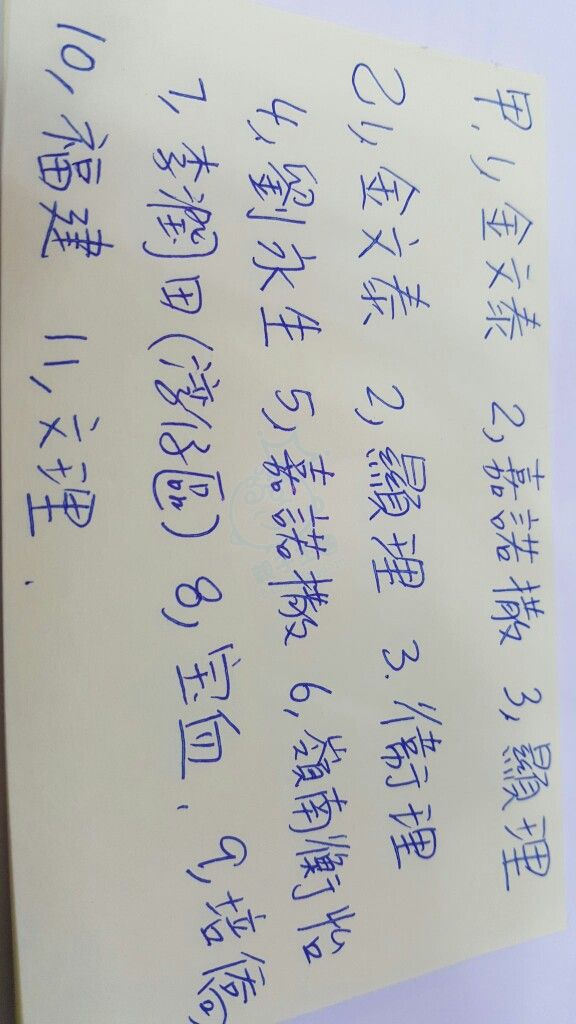 甲,1,金文泰 2,嘉諾撒 3,顯理
乙,1,金文泰 2,顯理 3.衞理
4,劉永生 5,嘉諾撒 6,嶺南衡怡
7,李潤田(灣仔區) 8,宝血. 9,培僑,
10,福建 11,文理.